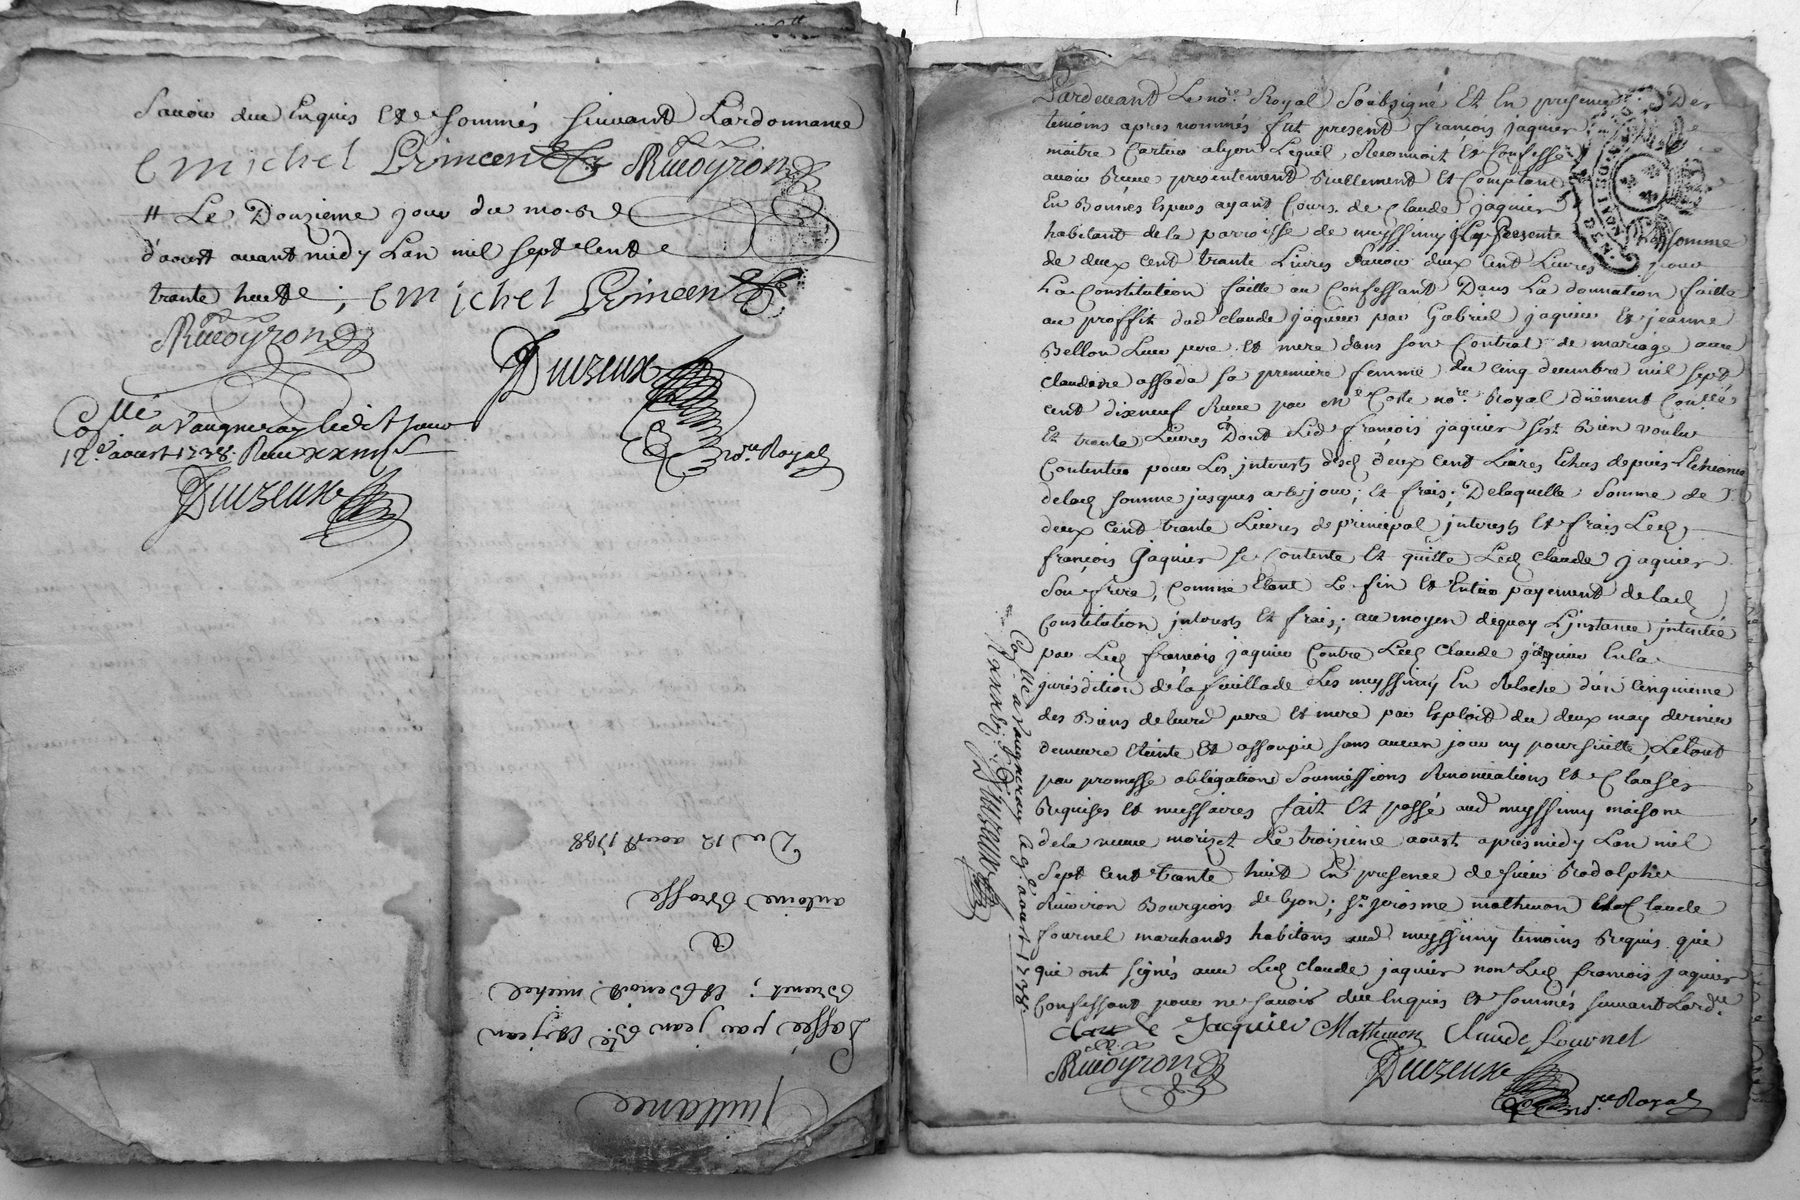 Savoir de ce Enquis et Sommés suivant Lordonnance
E michel Princent Rivoyron
# Le Douzieme jour du mois
d'aoust avant midy Lan mil sept Cent
trante huit; E michel Princent
Rivoyron
Duizeux
no.re Royal
Co.llé à Vaugneray ledit jour
12.e aoust 1738. Receu
Duizeux
Quittance
Passée par jean B.te et jean
Brunet; et Benoit michel
a
antoine brosse
Du 12 aoust 1738
Pardevant Le no.re Royal Soubsigné Et En presence Des
temoins apres nommés fut present francois jaquier
maitre Cartier a lyon Lequel Reconnoit et Confesse
avoir Receu presentement Reellement et Comptant
En Bonnes Especes ayant Cours de Claude jaquier
habitant de la parroisse de meyssimy La somme
de deux cent trante Livres Savoir deux Cent Livres pour
La Constitution faitte au Confessant Dans La donnation faitte
au proffit dud claude jaquier par Gabriel jaquier et jeanne
Bellon Leur pere et mere dans son Contrat de mariage avec
Claudine assada sa premiere femme du cinq decembre mil sept
cent dixneuf Receu par M.e Coste no.re Royal düement Con.llé
Et trante Livres Dont Led françois jaquier s'est Bien voulu
Contenter pour Les interests desd deux cent Livres Echus depuis
delad somme jusques a ce jour; et frais; Delaquelle Somme de
deux Cent trante Livres de principal interests et frais Led
françois Jaquier se Contente et quitte Led Claude jaquier
Son frere, Comme Etant Le fin et Entier payement delad
Constitution interests et frais; au moyen dequoy L'instance intentée
par Led francois jaquier Contre Led Claude jaquier En la
jurisdition de la fuillade Les meyssimy En Relache d'un Cinquieme
des Biens de leurd pere et mere par Exploit du deux may dernier
demeure Eteinte et assoupie sans aucun jour ny poursuitte, Letout
par promesse obligations Soumissions Renonciations et Clauses
Requises et nessaires fait et passé aud meyssimy maison
de la veuve morizot Le troisieme aoust apres midy Lan mil
Sept Cent trante huit En presence de sieur Rodolphe
Rivoiron Bourgeois de lyon; s.r jerosme mathevon et Claude
fournel marchands habitans aud meyssimy temoins Requis qui
qui ont signés avec Led Claude jaquier non Led francois jaquier
Confessant pour ne savoir de ce Enquis et Sommés suivant Lord.ce
Claude Jacquier Mathevon Claude Fournel
Rivoyron
Duizeux
no.re Royal
Co.llé à Vaugneray le 9.e aoust 1738
Duizeux